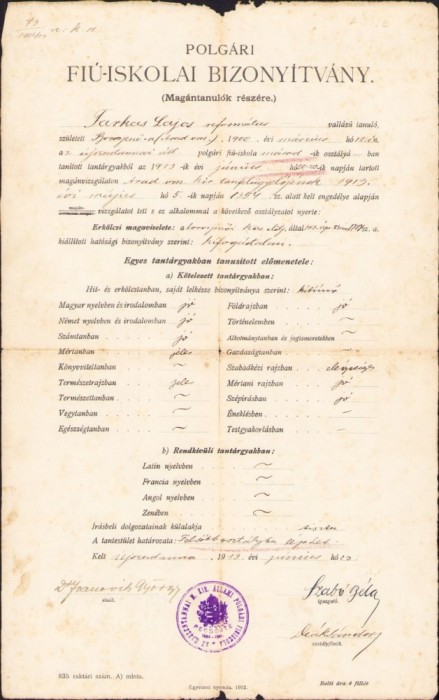 POLGÁRI
FIÚ-ISKOLAI BIZONYÍTVÁNY.
(Magántanulók részére.)
Farkas Lajos református vallású tanuló,
született 1900. évi március hó
az polgári fiú-iskola másod -ik osztályá — ban
tanított tantárgyakból az 1913 évi június hó napján tartott
magánvizsgálaton Arad vm. kir. tanfelügyelőjének 1913.
évi május hó 5-ik napján 1354 sz. alatt kelt engedélye alapján
vizsgálatot tett s ez alkalommal a következő osztályzatot nyerte:
Erkölcsi magaviselete: által sz. a
kiállított hatósági bizonyítvány szerint: kifogástalan.
Egyes tantárgyakban tanusított előmenetele:
a) Kötelezett tantárgyakban:
Hit- és erkölcstanban, saját lelkésze bizonyítványa szerint: kitünő
Magyar nyelvben és irodalomban jó
Német nyelvben és irodalomban jó
Számtanban jó
Mértanban jeles
Könyvviteltanban ~
Természetrajzban jeles
Természettanban ~
Vegytanban ~
Egészségtanban ~
Földrajzban jó
Történelemben ~
Alkotmánytanban és jogismeretekben ~
Gazdaságtanban ~
Szabadkézi rajzban elégséges
Mértani rajzban jó
Szépírásban jó
Éneklésben —
Testgyakorlásban —
b) Rendkívüli tantárgyakban:
Latin nyelvben ~
Francia nyelvben ~
Angol nyelvben ~
Zenében ~
Irásbeli dolgozatainak külalakja tiszta
A tantestület határozata: Felsőbb osztályba léphet.
Kelt Ujszentanna 1913 évi június hó
elnök.
Szabó Géza
igazgató.
osztályfőnök.
835. raktári szám. A) minta.
Egyetemi nyomda. 1912.
Bolti ára 4 fillér